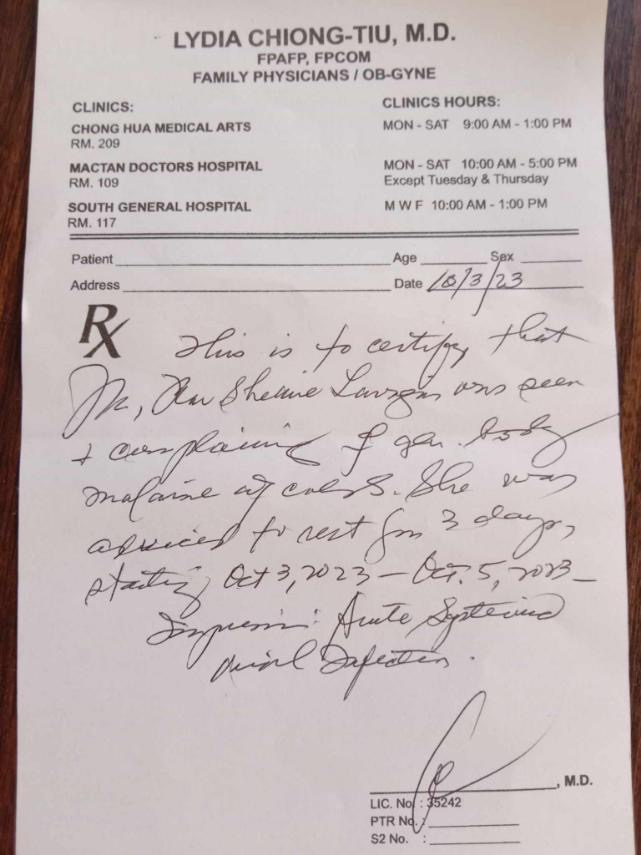 LYDIA CHIONG-TIU, M.D.
FPAFP, FPCOM
FAMILY PHYSICIANS / OB-GYNE
CLINICS: CLINICS HOURS:
CHONG HUA MEDICAL ARTS MON - SAT 9:00 AM - 1:00 PM
RM. 209
MACTAN DOCTORS HOSPITAL MON - SAT 10:00 AM - 5:00 PM
RM. 109 Except Tuesday & Thursday
SOUTH GENERAL HOSPITAL M W F 10:00 AM - 1:00 PM
RM. 117
Patient Age Sex
Address Date 10/3/23
Rx
This is to certify that
was seen
+ complaining of gen. body
malaise w/ colds. She was
adviced to rest for 3 days,
starting Oct 3, 2023 - Oct. 5, 2023 -
Impression: Acute Systemic
Viral Infection.
, M.D.
LIC. No. : 35242
PTR No. :
S2 No. :